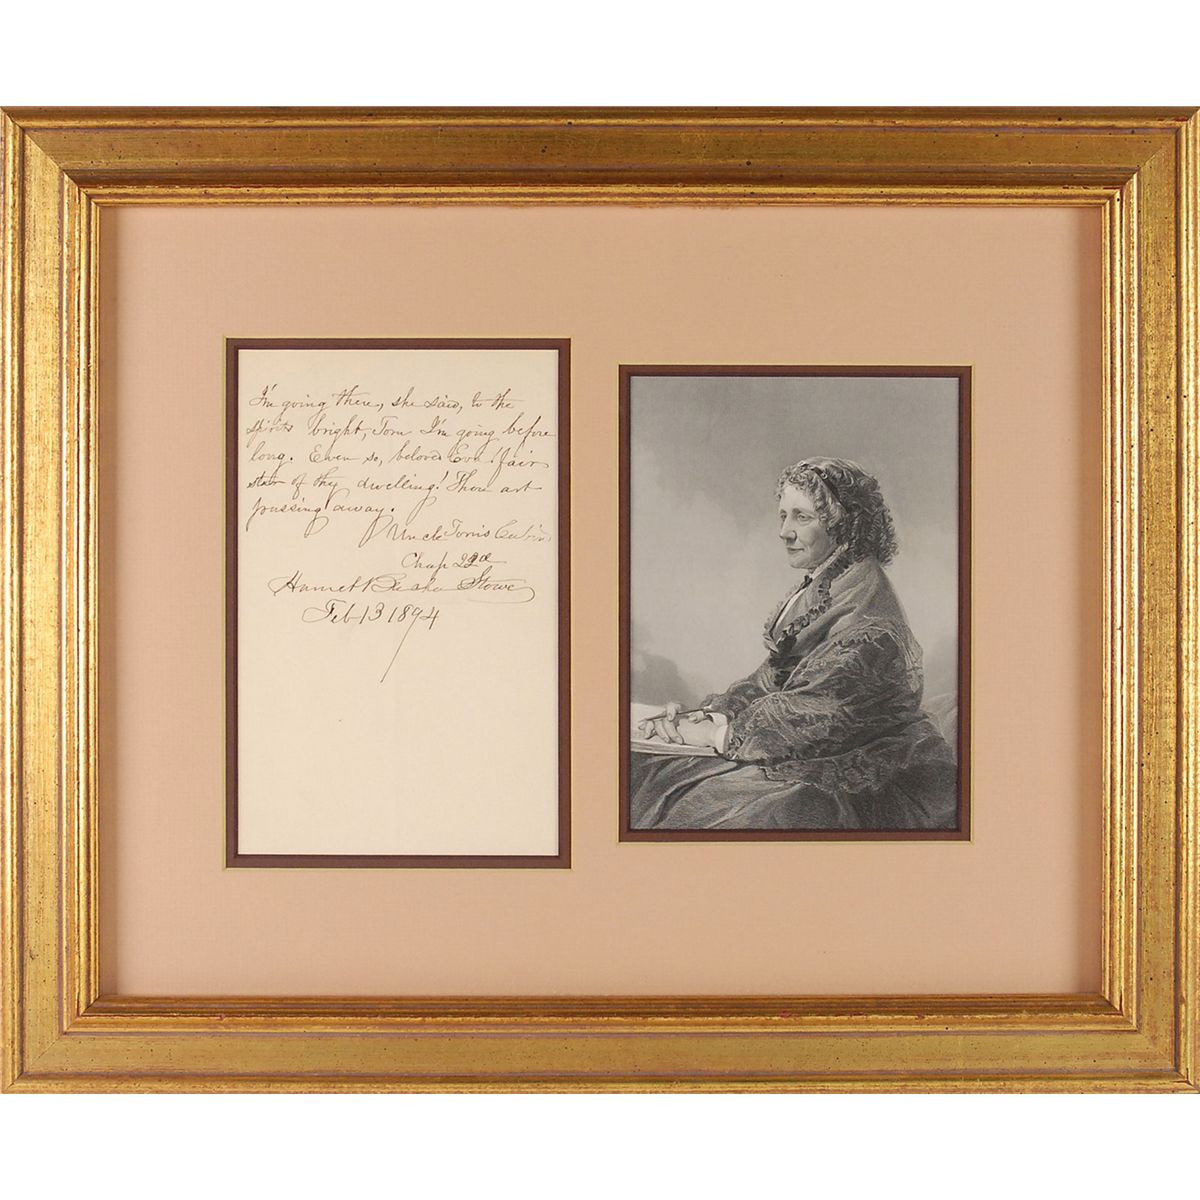 I'm going there, she said, to the
spirits bright, Tom I'm going before
long. Even so, beloved Eva! fair
star of thy dwelling! Thou art
passing away.
Uncle Tom's Cabin
Chap 22d
Harriet Beecher Stowe
Feb 13 1894